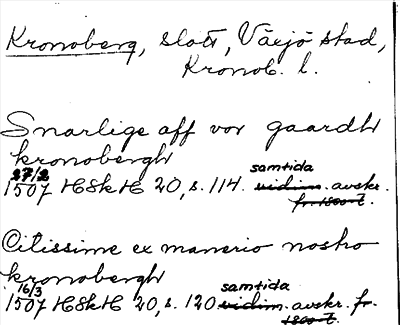 Kronoberg, slott, Växjö stad,
Kronob. l.
Snarlige aff vor gaardh
kronobergh
27/2
samtida
1507 HSkH 20, s. 114. vidim. avskr.
fr. 1800-t.
Citissime ex manerio nostro
kronobergh
16/3
samtida
1507 HSkH 20, s. 120 vidim. avskr. fr.
1800-t.